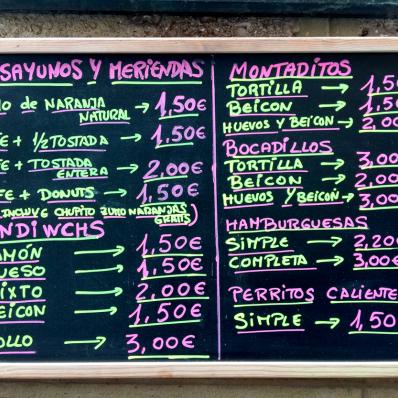 SAYUNOS Y MERIENDAS
O de NARANJA NATURAL → 1,50€
FE + 1/2 TOSTADA → 1,50€
FE + TOSTADA ENTERA → 2,00€
FE + DONUTS → 1,50€
INCLUYE CHUPITO ZUMO NARANJAS GRATIS)
NDIWCHS
AMÓN → 1,50€
UESO → 1,50€
IXTO → 2,00€
EICON → 1,50€
OLLO → 3,00€
MONTADITOS
TORTILLA → 1,50
BEICON → 1,50
HUEVOS Y BEICON → 2,00
BOCADILLOS
TORTILLA → 3,00
BEICON → 2,00
HUEVOS Y BEICON → 3,00
HAMBURGUESAS
SIMPLE → 2,20€
COMPLETA → 3,00€
PERRITOS CALIENTE
SIMPLE → 1,50